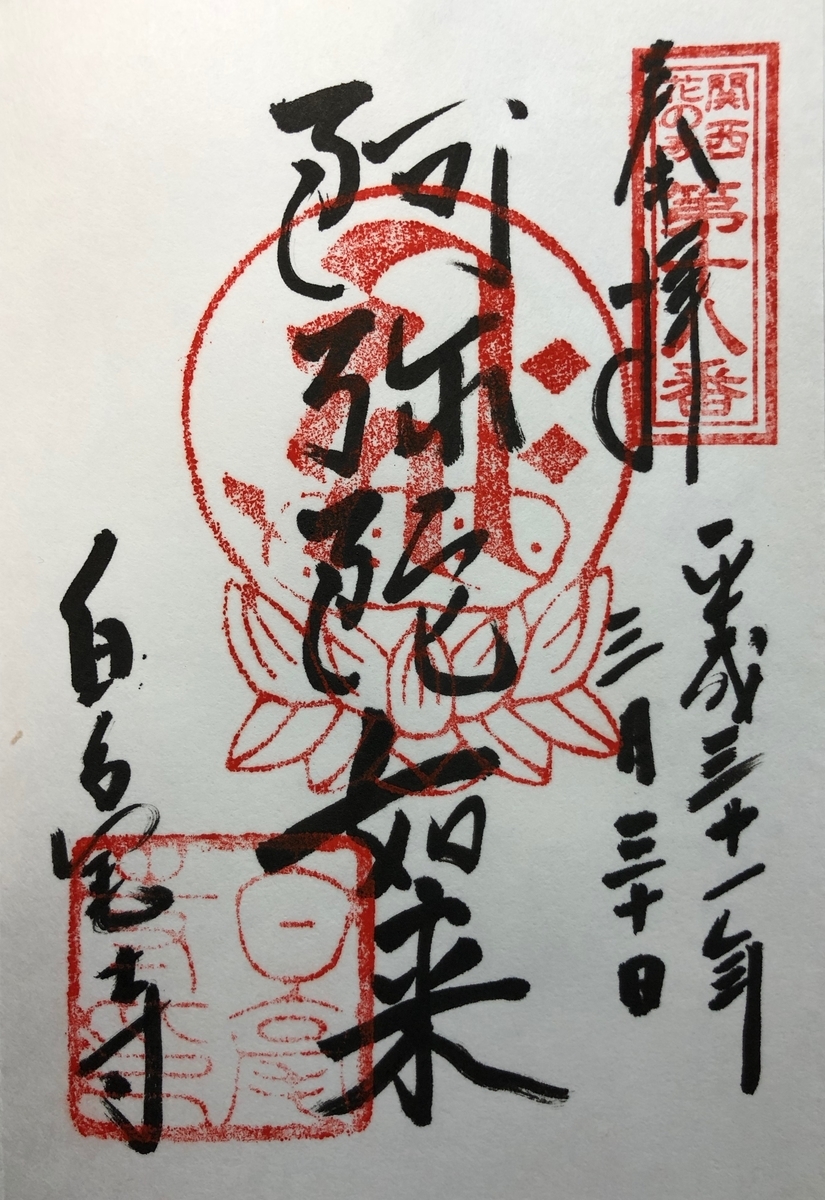 関西
花の寺
第十八番
奉拝
平成三十一年
三月三十日
阿弥陀如来
白毫寺